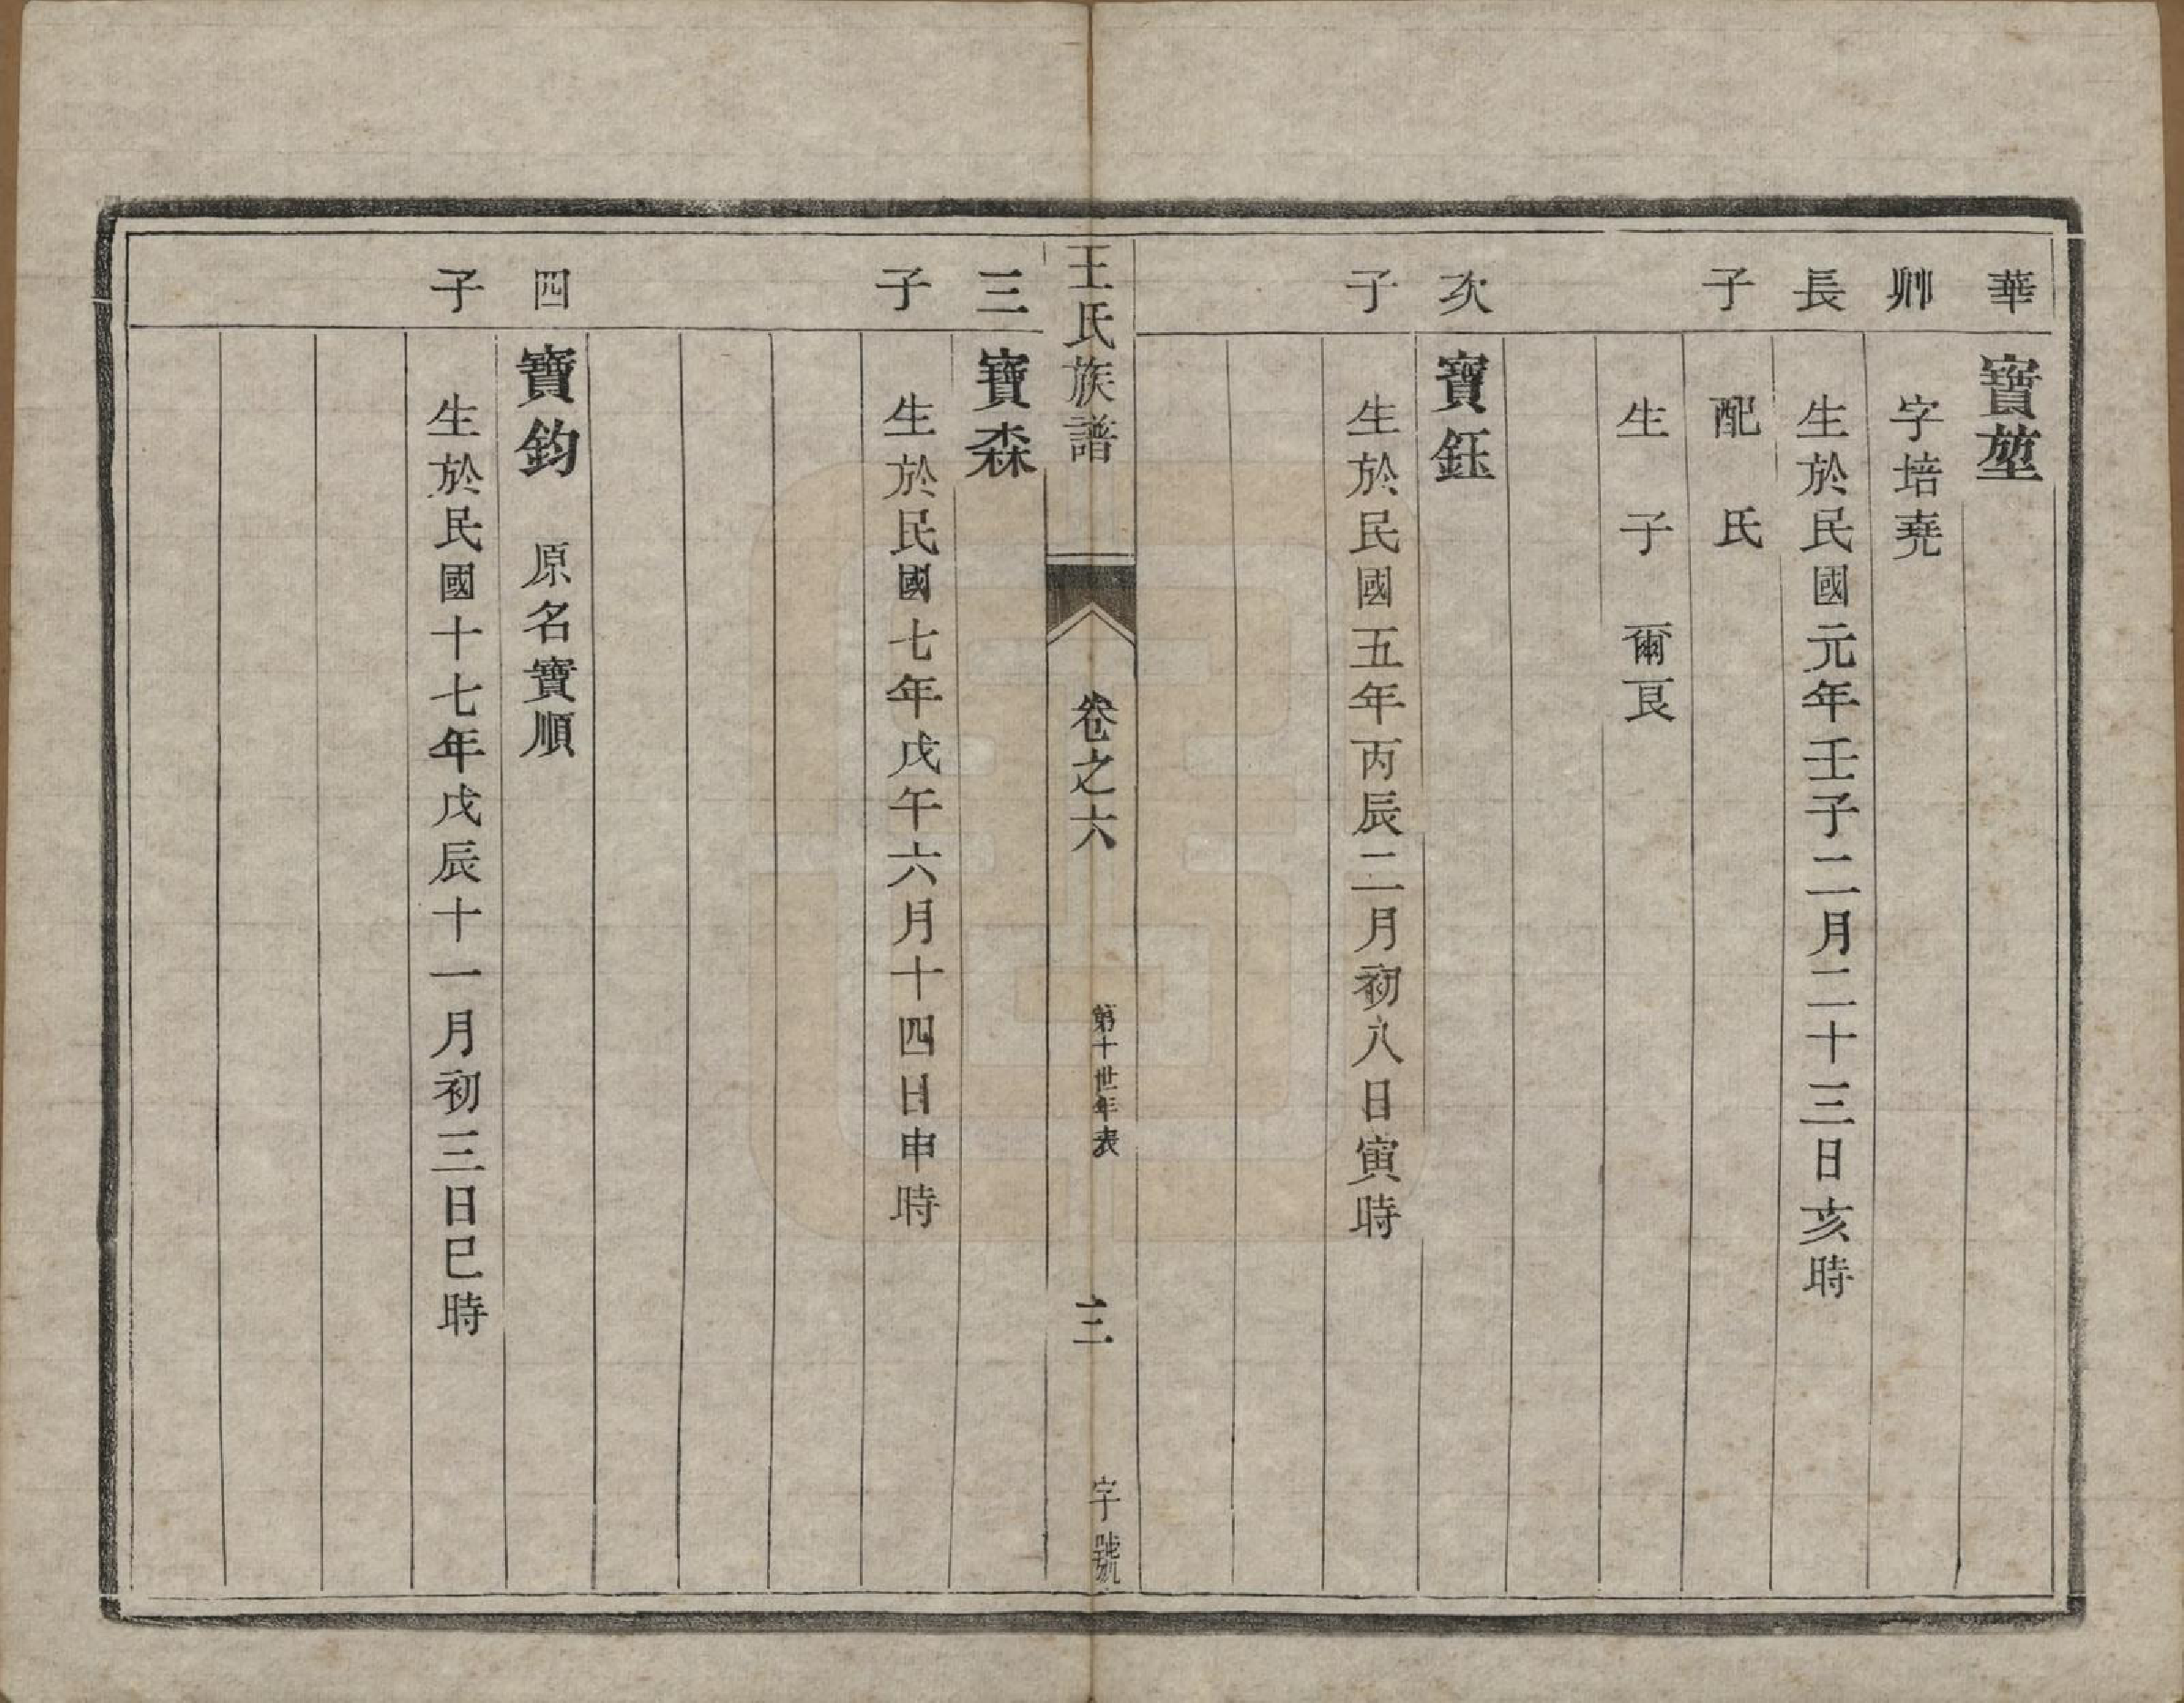 華 寶堃
卿 字培堯
長 生於民國元年壬子二月二十三日亥時
子 配 氏
生 子 爾艮
次 寶鈺
子 生於民國五年丙辰二月初八日寅時
王氏族譜 卷之六 第十世年表 三 字號
三 寶森
子 生於民國七年戊午六月十四日申時
四 寶鈞 原名寶順
子 生於民國十七年戊辰十一月初三日巳時